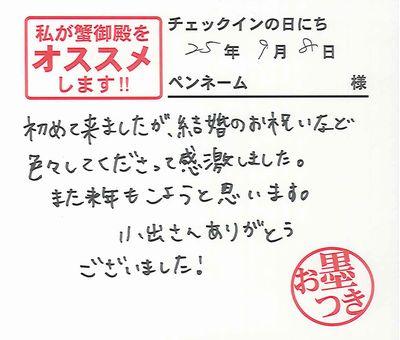 私が蟹御殿を
オススメ
します!!
チェックインの日にち
25年9月8日
ペンネーム 様
初めて来ましたが、結婚のお祝いなど
色々してくださって感激しました。
また来年もこようと思います。
小出さんありがとう
ございました!
お墨つき